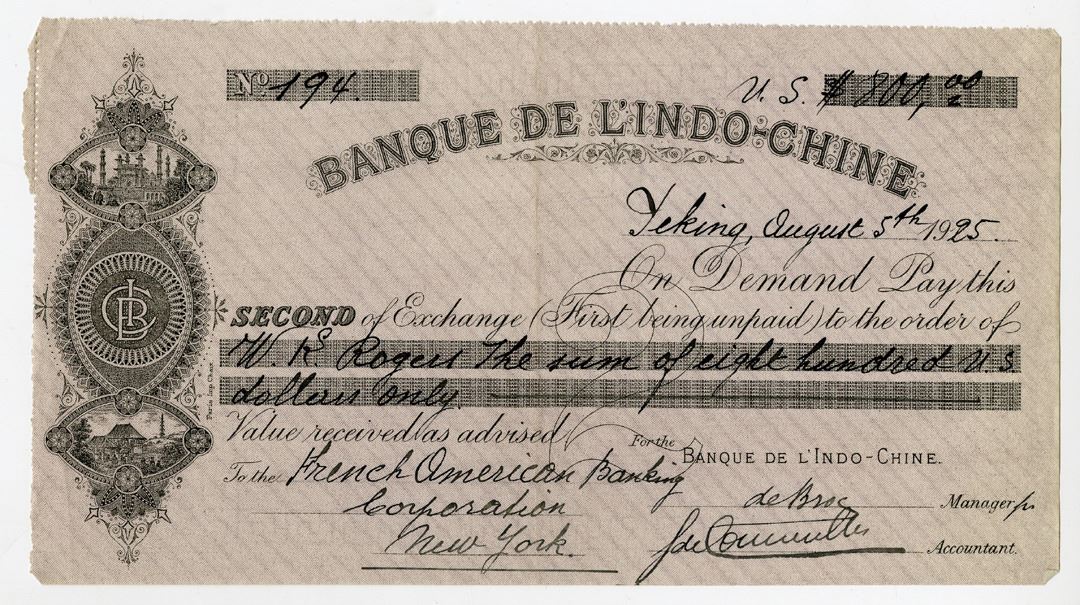 No 194.
U. S. $ 800,00
BANQUE DE L'INDO-CHINE
Peking, August 5th 1925
On Demand Pay this
SECOND of Exchange (First being unpaid) to the order of
W. K. Rogers The sum of eight hundred U.S
dollars only
Value received as advised
For the BANQUE DE L'INDO-CHINE.
To the French American Banking
Corporation
New York.
de Broc Manager
Accountant.